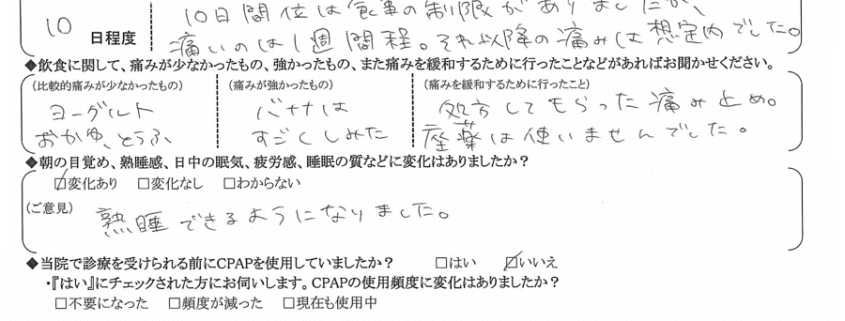 10日間位は食事の制限がありましたが、
10 日程度
痛いのは1週間程。それ以降の痛みは想定内でした。
◆飲食に関して、痛みが少なかったもの、強かったもの、また痛みを緩和するために行ったことなどがあればお聞かせください。
(比較的痛みが少なかったもの) (痛みが強かったもの) (痛みを緩和するために行ったこと)
ヨーグルト バナナは 処方してもらった痛み止め。
おかゆ、とうふ すごくしみた 座薬は使いませんでした。
◆朝の目覚め、熟睡感、日中の眠気、疲労感、睡眠の質などに変化はありましたか?
☑変化あり □変化なし □わからない
(ご意見) 熟睡できるようになりました。
◆当院で診療を受けられる前にCPAPを使用していましたか? □はい ☑いいえ
・『はい』にチェックされた方にお伺いします。CPAPの使用頻度に変化はありましたか?
□不要になった □頻度が減った □現在も使用中